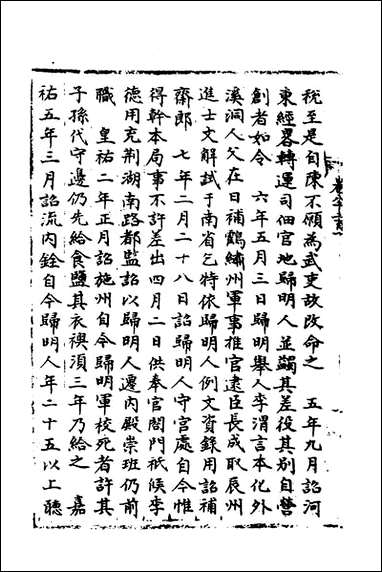 稅至是自陳不願為武吏故改命之　五年九月詔河
東經畧轉運司佃官地歸明人並蠲其差役其別自營
創者如令　六年五月三日歸明舉人李渭言本化外
溪洞人父在日補鶴繡州軍事推官遠臣長成取辰州
進士文解試于南省乞特依歸明人例文資錄用詔補
齋郎　七年二月二十八日詔歸明人守官處自今惟
得幹本局事不許差出四月二日供奉官閤門祗候李
德用充荆湖南路都監詔以歸明人遷內殿崇班仍前
職　皇祐二年正月詔施州自今歸明軍校死者許其
子孫代守邊仍先給食鹽其衣襖須三年乃給之　嘉
祐五年三月詔流內銓自今歸明人年二十五以上聽